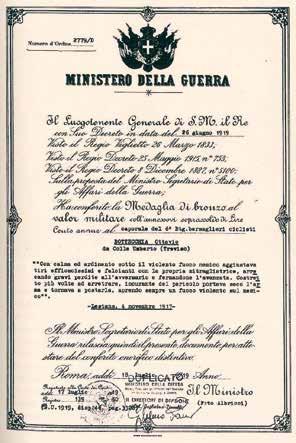 Numero d'Ordine 2779/D
MINISTERO DELLA GUERRA
Il Luogotenente Generale di S.M. il Re
con Suo Decreto in data del 26 giugno 1919
Visto il Regio Viglietto 26 Marzo 1833;
Visto il Regio Decreto 25 Maggio 1915, n° 753;
Visto il Regio Decreto 8 Dicembre 1887, n° 5100;
Sulla proposta del Ministro Segretario di Stato per
gli Affari della Guerra;
Ha conferito la Medaglia di bronzo al
valor militare coll'annesso soprassoldo di Lire
Cento annue al caporale del 6° Btg.bersaglieri ciclisti
BOTTECCHIA Ottavio
da Colle Umberto (Treviso)
"Con calma ed ardimento sotto il violento fuoco nemico aggiustava
tiri efficacissimi e falcianti con la propria mitragliatrice, arrec
ando gravi perdite all'avversario e fermandone l'avanzata. Costret
to più volte ad arretrare, incurante del pericolo portava seco l'ar
ma e tornava a postarla, aprendo sempre un fuoco violento sul nemi
co".
Lestans, 4 novembre 1917
Il Ministro Segretario di Stato per gli Affari della
Guerra rilascia quindi il presente documento per atte-
stare del conferito onorifico distintivo.
Roma, addì 19 Anno
DUPLICATO
MINISTERO DELLA GUERRA
17 luglio
139
IL DIRETTORE DI DIVISIONE
Il Ministro
(Fto Albricci)